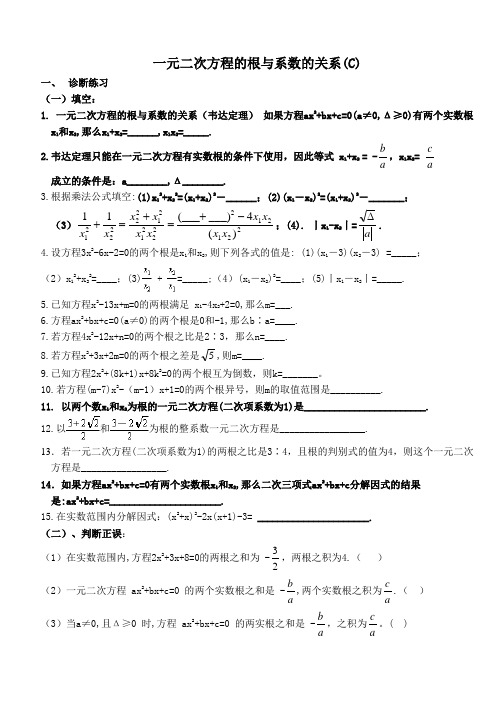 一元二次方程的根与系数的关系(C)
一、 诊断练习
（一）填空:
1. 一元二次方程的根与系数的关系（韦达定理） 如果方程ax²+bx+c=0(a≠0,Δ≥0)有两个实数根
x₁和x₂,那么x₁+x₂=______,x₁x₂=_____.
2.韦达定理只能在一元二次方程有实数根的条件下使用，因此等式 x₁+x₂ = -b/a, x₁x₂= c/a
成立的条件是: a________,Δ________.
3.根据乘法公式填空:(1)x₁²+x₂²=(x₁+x₂)²－______; (2)(x₁－x₂)²=(x₁+x₂)²－_______;
（3） 1/x₁² + 1/x₂² = (x₂²+x₁²)/(x₁²x₂²) = ((___+___)²－4x₁x₂)/(x₁x₂)²; (4). ｜x₁-x₂｜=√Δ/a.
4.设方程3x²-6x-2=0的两个根是x₁和x₂,则下列各式的值是: (1)(x₁－3)(x₂－3) =_____;
（2）x₁²+x₂²=____; (3) x₁/x₂ + x₂/x₁=_____;(4) (x₁－x₂)²=____; (5)｜x₁－x₂｜=_____.
5.已知方程x²-13x+m=0的两根满足 x₁-4x₂+2=0,那么m=___.
6.方程ax²+bx+c=0(a≠0)的两个根是0和-1,那么b∶a=____.
7.若方程4x²-12x+n=0的两个根之比是2∶3，那么n=____.
8.若方程x²+3x+2m=0的两个根之差是√5,则m=____.
9.已知方程2x²+(8k+1)x+8k²=0的两个根互为倒数，则k=_______。
10.若方程(m-7)x²-（m-1）x+1=0的两个根异号，则m的取值范围是__________.
11. 以两个数x₁和x₂为根的一元二次方程(二次项系数为1)是________________________.
12.以(3+2√2)/2和(3－2√2)/2为根的整系数一元二次方程是_________________.
13．若一元二次方程(二次项系数为1)的两根之比是3∶4，且根的判别式的值为4，则这个一元二次
方程是_________________.
14．如果方程ax²+bx+c=0有两个实数根x₁和x₂,那么二次三项式ax²+bx+c分解因式的结果
是:ax²+bx+c=______________________.
15.在实数范围内分解因式: (x²+x)²-2x(x+1)-3= ______________________.
（二）、判断正误:
（1）在实数范围内,方程2x²+3x+8=0的两根之和为 -3/2，两根之积为4.（ ）
（2）一元二次方程 ax²+bx+c=0 的两个实数根之和是 -b/a,两个实数根之积为 c/a.（ ）
（3）当a≠0,且Δ≥0 时,方程 ax²+bx+c=0 的两实根之和是 -b/a，之积为 c/a。( )